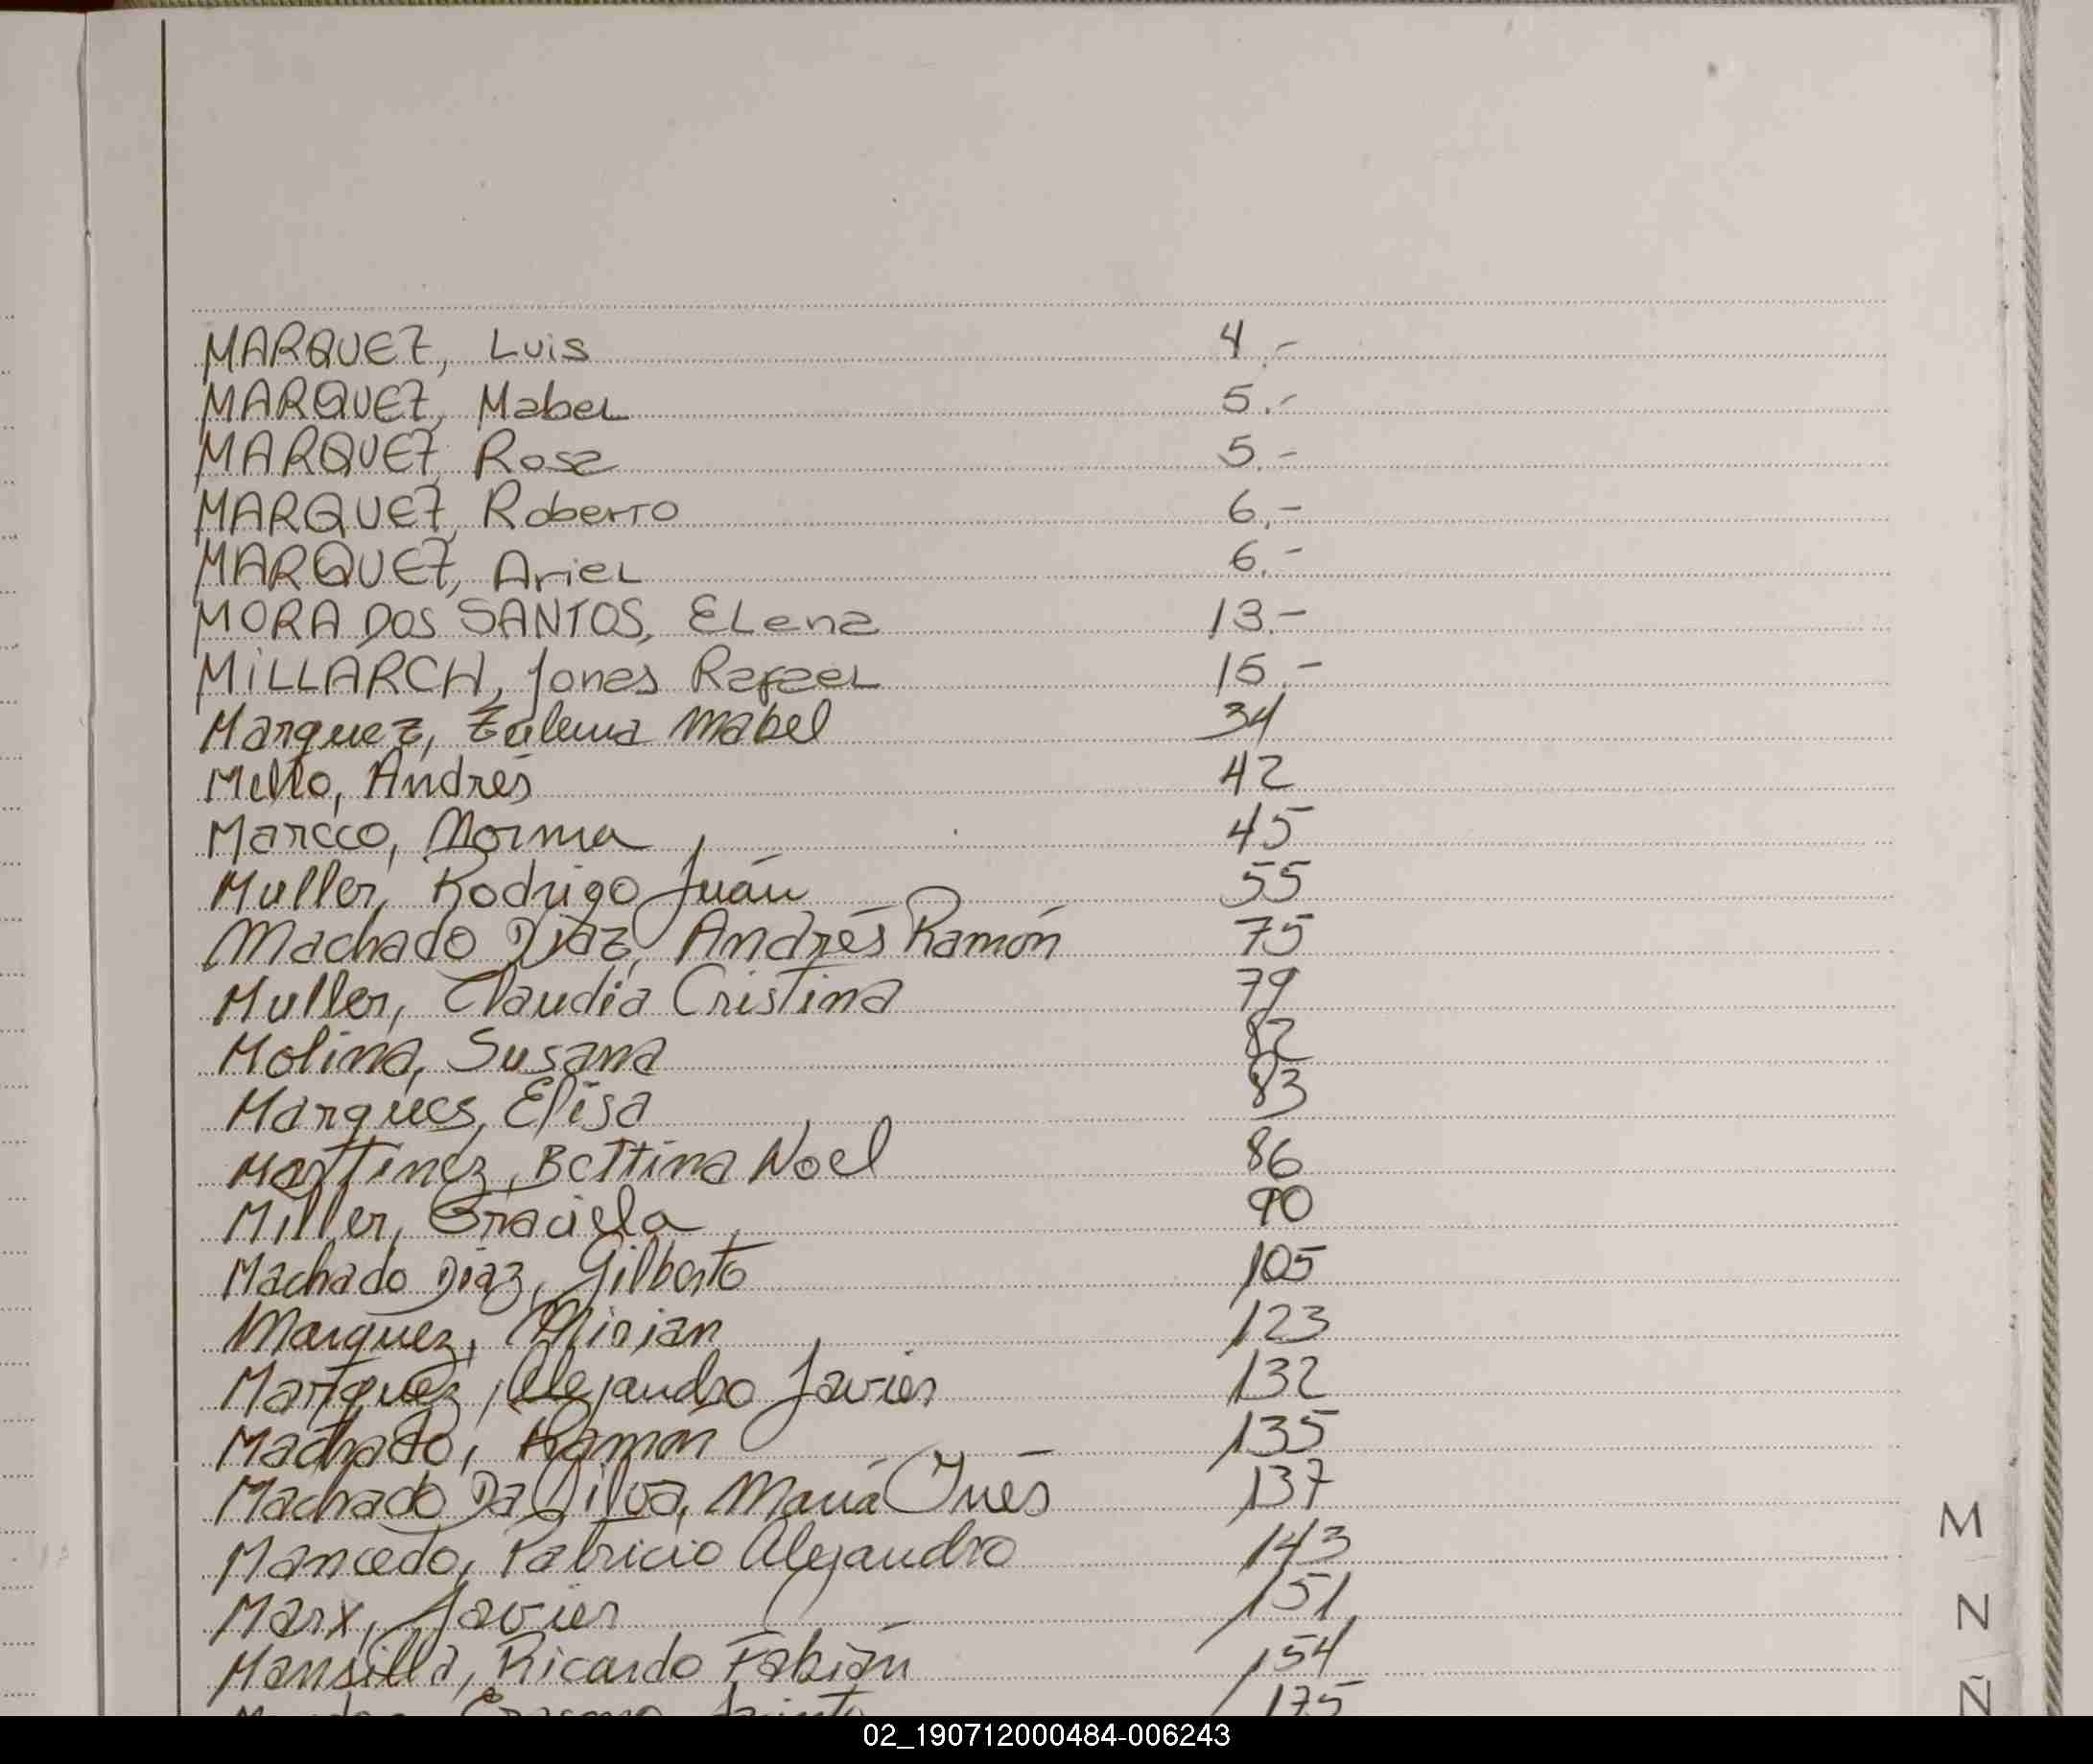 MARQUEZ, Luis 4.-
MARQUEZ, Mabel 5.-
MARQUEZ, Rosa 5.-
MARQUEZ, Roberto 6.-
MARQUEZ, Ariel 6.-
MORA DOS SANTOS, Elena 13.-
MILLARCH, Jones Rafael 15.-
Marquez, Zulema Mabel 34
Mello, Andrés 42
Marcco, Norma 45
Muller, Rodrigo Juán 55
Machado Diaz, Andrés Ramón 75
Muller, Claudia Cristina 79
Molina, Susana 82
Marques, Elisa 83
Martinez, Bettina Noel 86
Miller, Graciela 90
Machado Diaz, Gilberto 105
Marquez, Mirian 123
Marquez, Alejandro Javier 132
Machado, Ramon 135
Machado Da Silva, María Inés 137
Mancedo, Patricio Alejandro 143
Marx, Javier 151
Mansilla, Ricardo Fabián 154
175
M
N
Ñ
02_190712000484-006243